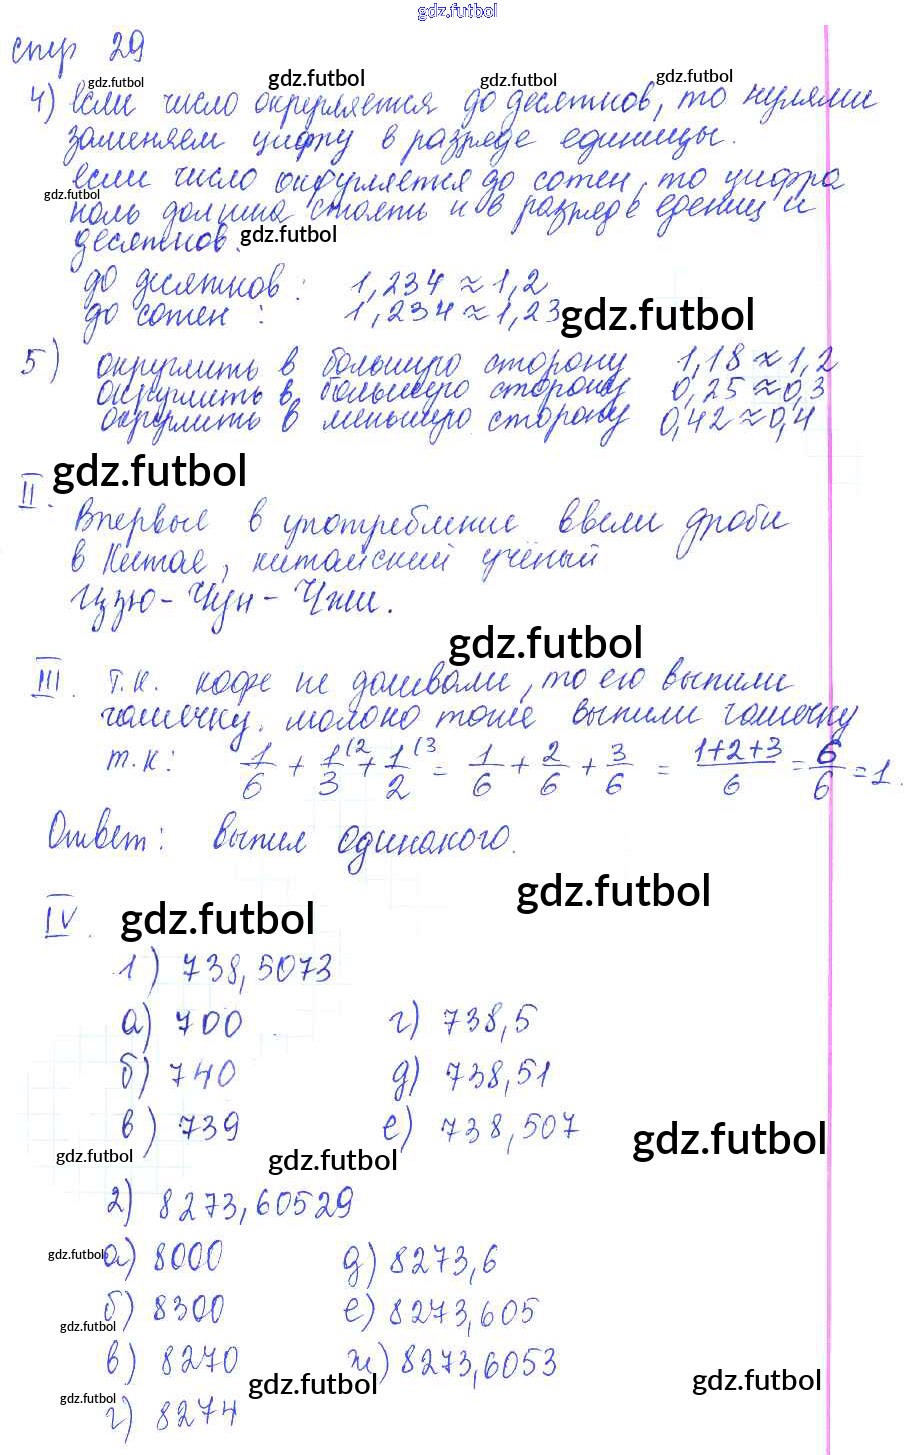 gdz.futbol
стр 29
gdz.futbol gdz.futbol gdz.futbol gdz.futbol
4) Если число округляется до десятков, то нулями
заменяем цифру в разряде единицы.
если число округляется до сотен, то цифра
gdz.futbol
ноль должна стоять и в разряде едениц и
десятков. gdz.futbol
до десятков: 1,234 ≈ 1,2
до сотен: 1,234 ≈ 1,23 gdz.futbol
5) округлить в большую сторону 1,18 ≈ 1,2
округлить в большую сторону 0,25 ≈ 0,3
округлить в меньшую сторону 0,42 ≈ 0,4
gdz.futbol
II.
Впервые в употребление ввели дроби
в Китае, китайский учёный
Цзю-Чун-Чжи.
gdz.futbol
III. Т.к. кофе не доливали, то его выпили
чашечку. молоко тоже выпили чашечку
т.к: 1/6 + 1/3 (2 + 1/2 (3 = 1/6 + 2/6 + 3/6 = 1+2+3/6 = 6/6 = 1.
Ответ: выпил одинакого.
gdz.futbol
IV. gdz.futbol
1) 738,5073
а) 700 г) 738,5
б) 740 д) 738,51
в) 739 е) 738,507 gdz.futbol
gdz.futbol gdz.futbol
2) 8273,60529
gdz.futbol а) 8000 д) 8273,6
б) 8300 е) 8273,605
gdz.futbol
в) 8270 ж) 8273,6053
gdz.futbol gdz.futbol
gdz.futbol
г) 8274